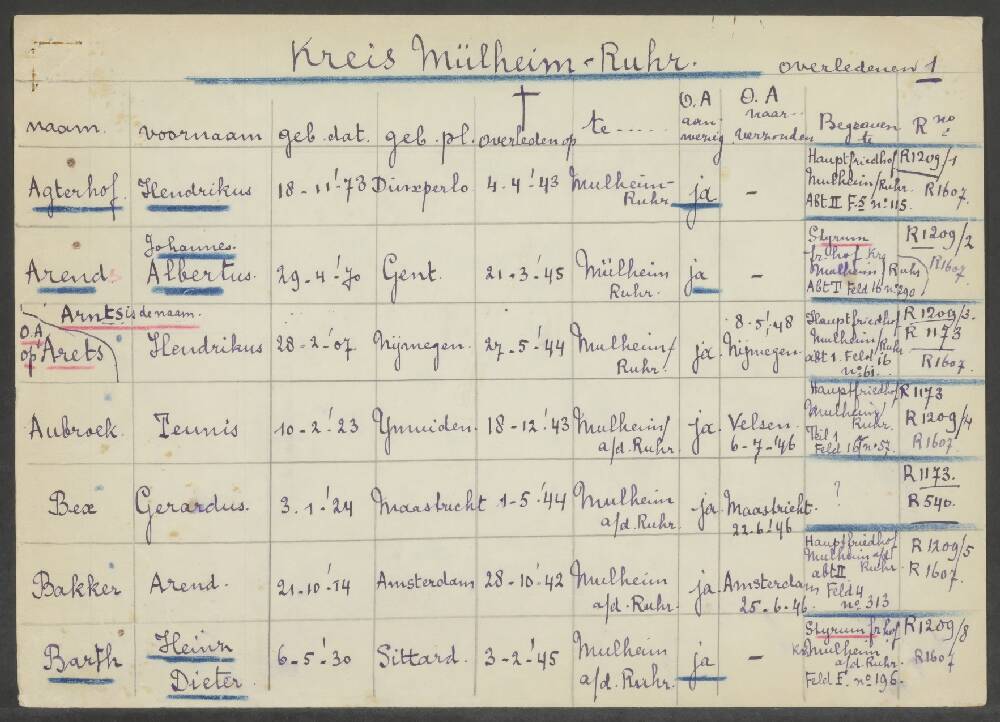 Kreis Mülheim-Ruhr. overledenen 1
naam. voornaam geb. dat. geb. pl. † overleden op te ..... O.A aan-wezig O.A naar... verzonden Begraven te R no.
Agterhof. Hendrikus 18-11-'73 Dinxperlo 4-4-'43 Mulheim-Ruhr. ja - Hauptfriedhof Mulheim/Ruhr. Abt II F.5 no 115. R1209/1 R1607.
Arend Johannes. Albertus. 29-4-'70 Gent. 21-3-'45 Mülheim Ruhr. ja - Styrum fr.hof Krs Mulheim/Ruhr Abt I Feld 16 no 290 R1209/2 R1607
Arnts is de naam.
O.A op Arets Hendrikus 28-2-'07 Nijmegen. 27-5-'44 Mulheim/Ruhr. ja. 8-5-'48 Nijmegen. Hauptfriedhof Mulheim/Ruhr abt 1. Feld 16 no 61. R1209/3. R1173 R1607
Aubroek. Teunis 10-2-'23 Ymuiden. 18-12-'43 Mulheim/a/d.Ruhr. ja. Velsen. 6-7-'46 Hauptfriedhof Mulheim/Ruhr. Teil 1 Feld 16 no 57. R1173 R1209/4 R1607
Bex Gerardus. 3-1-'24 Maastricht 1-5-'44 Mulheim a/d.Ruhr. ja. Maastricht. 22-6-'46 ? R1173. R540.
Bakker Arend. 21-10-'14 Amsterdam 28-10-'42 Mulheim a/d.Ruhr. ja Amsterdam 25-6-'46. Hauptfriedhof Mulheim a/d Ruhr abt II Feld 4 no 313 R1209/5 R1607.
Barth Heinz Dieter. 6-5-'30 Sittard. 3-2-'45 Mulheim a/d.Ruhr. ja - Styrum frhof Krs Mulheim a/d.Ruhr. Feld E. no 196. R1209/8 R1607